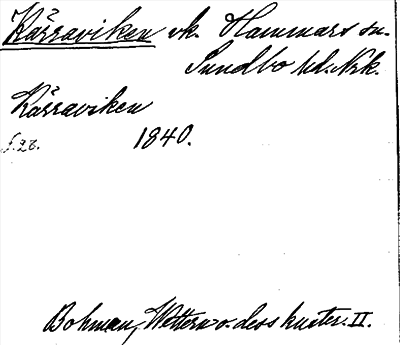 Kärraviken vk. Hammars sn.
Sundbo hd. Nrk.
Kärraviken
s. 28. 1840.
Bohman, Wettern o. dess kuster. II.